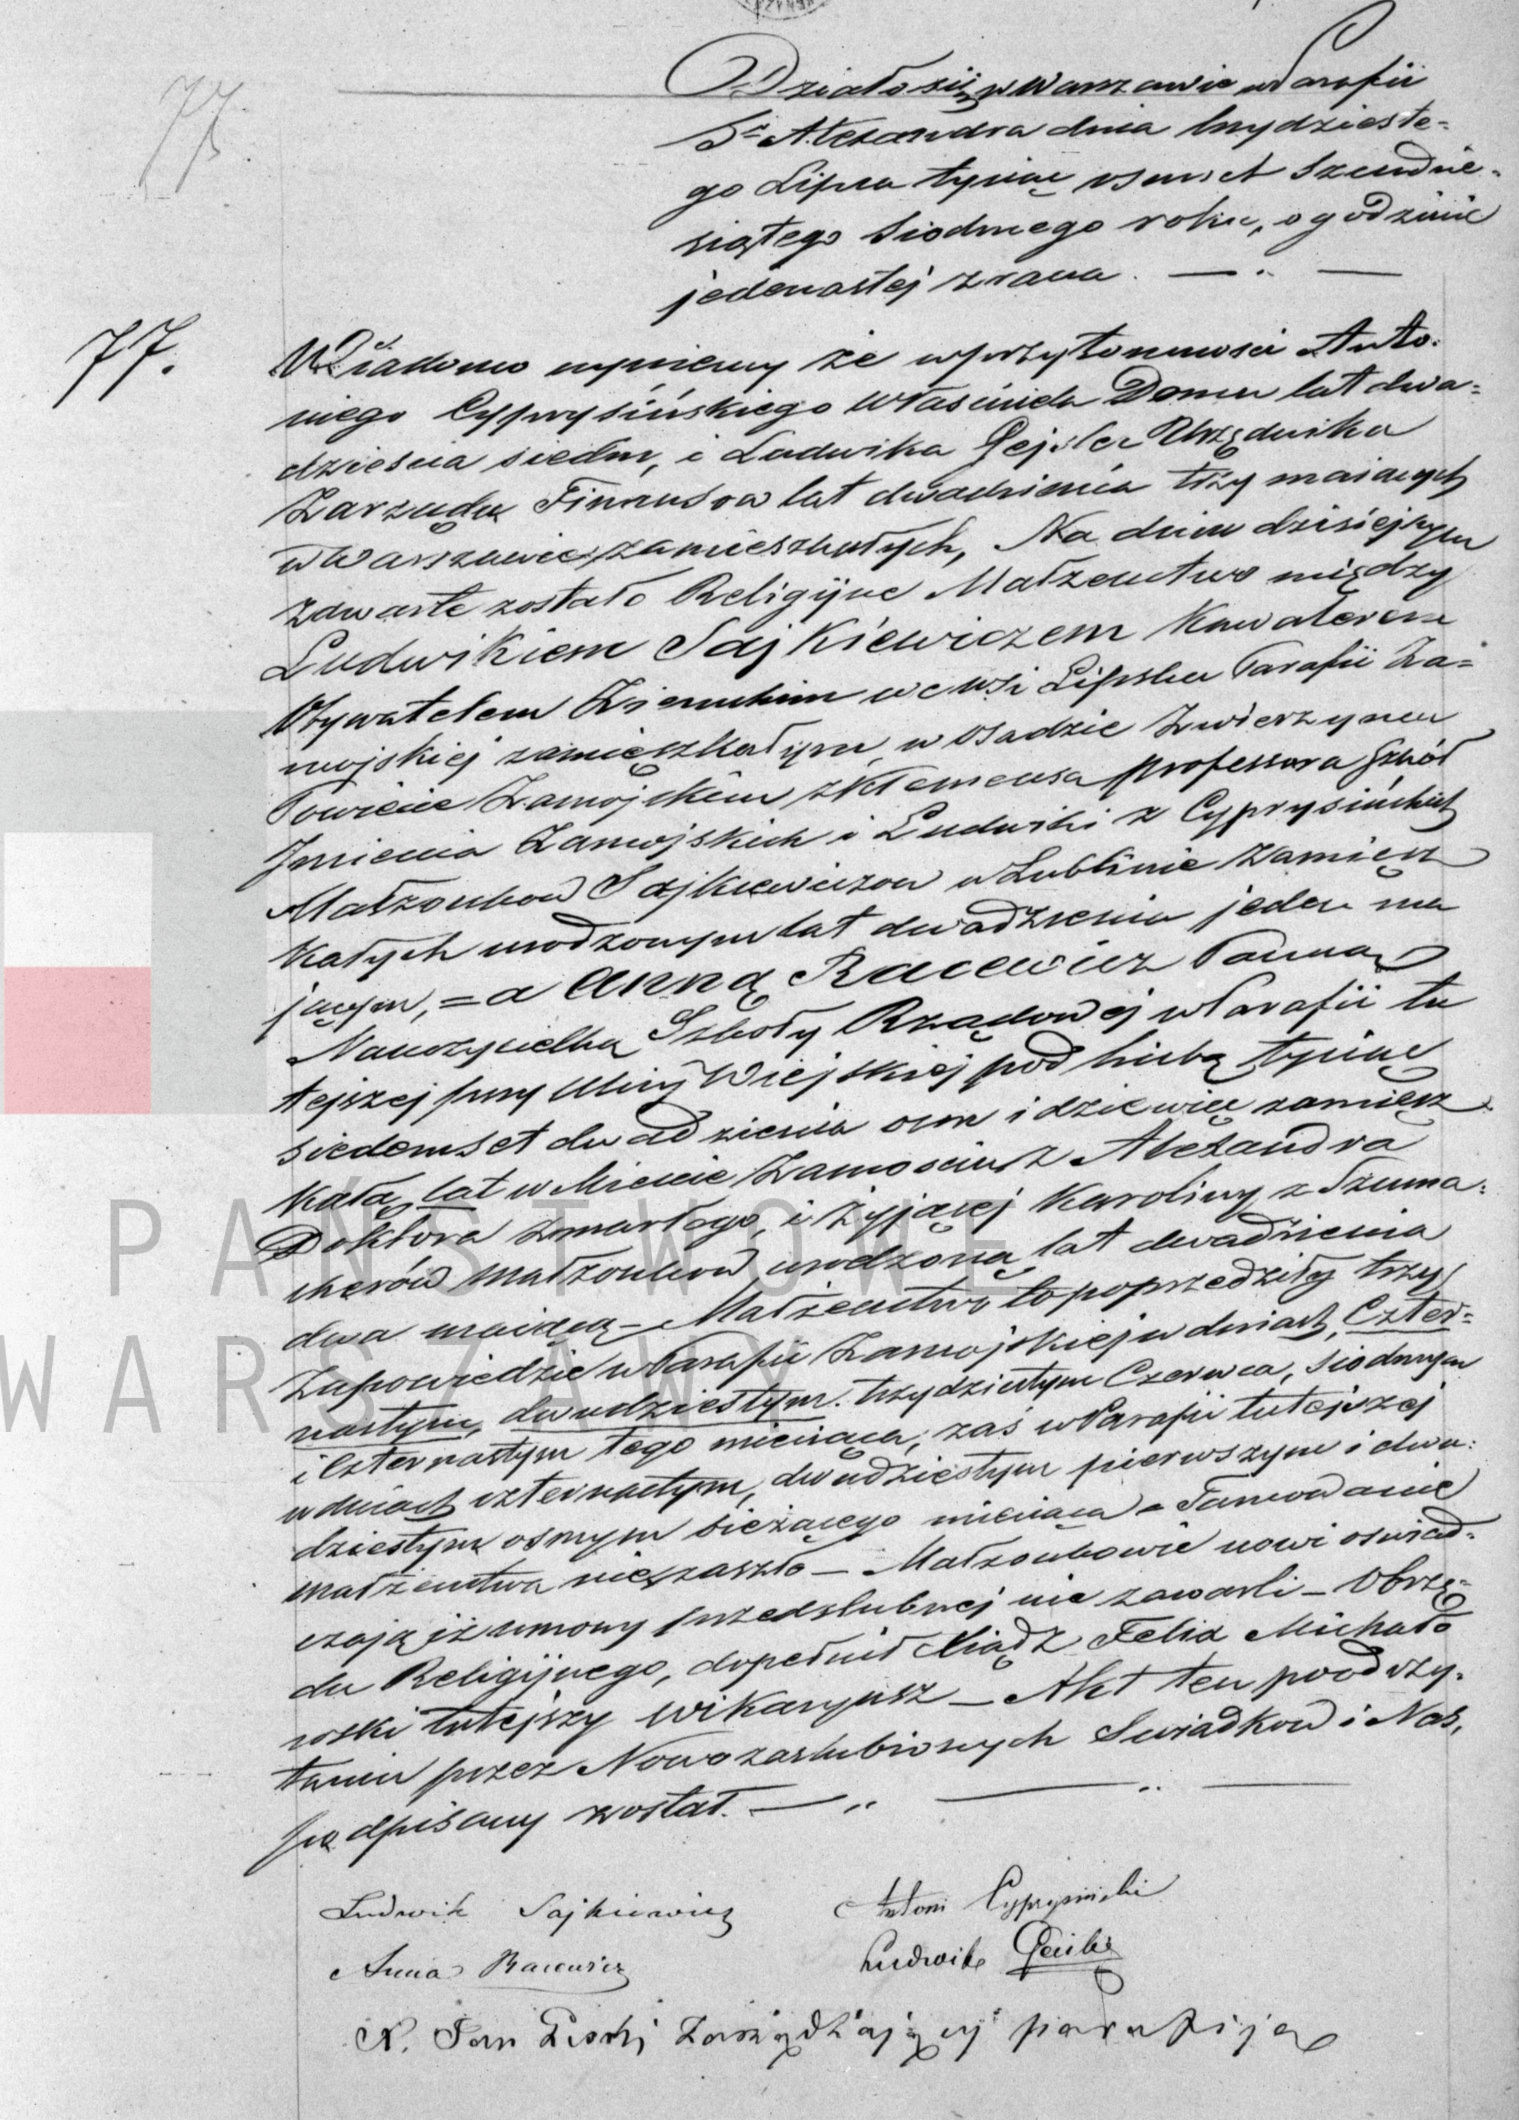 77
Działo się w Warszawie w Parafii
Sgo Alexandra dnia trzydzieste=
go Lipca tysiąc osmset szesdzie=
siątego siodmego roku, o godzinie
jedenastej z rana.
77.
Wiadomo czyniemy że w przytomnosci Anto=
niego Cyprysińskiego właściciela Domu lat dwa=
dzieścia siedm, i Ludwika Urzędnika
Zarządu Finansów lat dwadzieścia trzy maiących
w Warszawie zamieszkałych, Na dniu dzisiejszym
zawarte zostało Religijne Małżeństwo między
Ludwikiem Sajkiewiczem Kawalerem
Obywatelem Ziemskim we wsi Lipsku Parafii Za=
mojskiej zamięszkałym, w osadzie Zwierzyncu
Powiecie Zamojskim z Klemensa professora Szkół
Imienia Zamojskich i Ludwiki z Cyprysińskich
Małżonków Sajkiewiczów w Lublinie zamięsz
kałych urodzonym lat dwadzieścia jeden ma
jącym, = a Anną Racewicz Panną
Nauczycielką Szkoły Rządowej w Parafii tu
tejszej przy Ulicy Wiejskiej pod liczbą tysiąc
siedemset dwadzieścia osm i dziewięć zamięsz
kałą, lat w Mieście Zamościu z Alexandra
Doktora zmarłego, i żyjącej Karoliny z Szuma=
cherów małżonków urodzoną, lat dwadzieścia
dwa maiącą – Małżeństwo to poprzedziły trzy
Zapowiedzie w Parafii Zamojskiej w dniach, Czter=
nastym, dwudziestym. trzydziestym Czerwca, siodmym
i czternastym tego miesiąca, zaś w Parafii tutejszej
w dniach czternastym, dwudziestym pierwszym i dwu=
dziestym osmym bieżącego miesiąca – Tamowanie
małżeństwa nie zaszło – Małżonkowie nowi oświad=
czają iż umowy przedslubnej nie zawarli – Obrzę=
du Religijnego, dopełnił Xiądz Felix Michało
wski tutejszy wikaryusz – Akt ten po odczy=
taniu przez Nowozaslubionych Swiadkow i Nas,
podpisany został.
Ludwik Sajkiewicz
Antoni Cyprysiński
Anna Racewicz
Ludwik
X. Jan Zarządzający parafiją